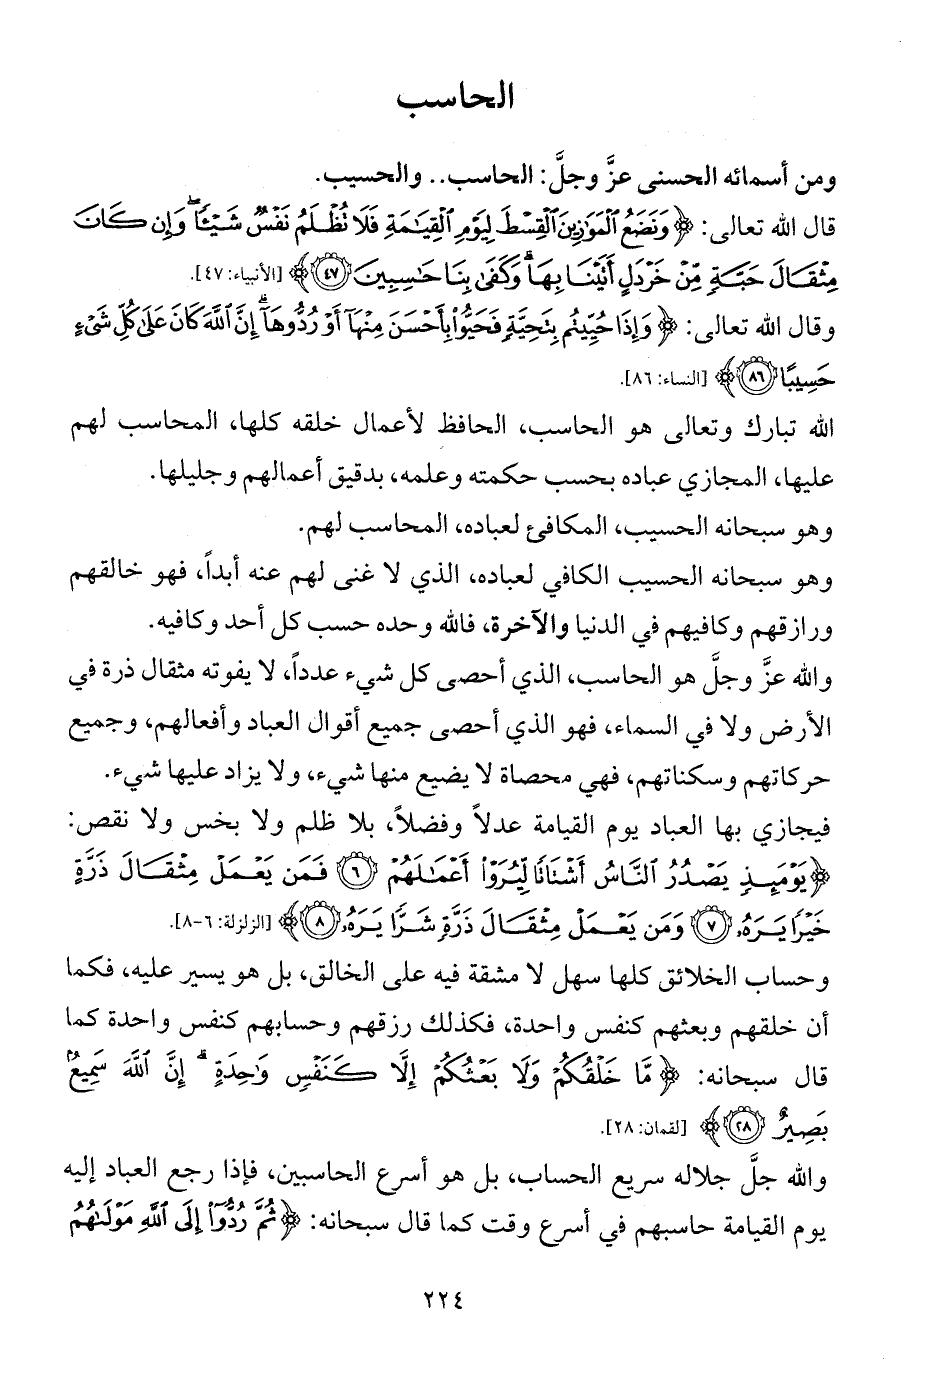 الحاسب
ومن أسمائه الحسنى عزَّ وجلَّ: الحاسب.. والحسيب.
قال الله تعالى: ﴿وَنَضَعُ ٱلْمَوَٰزِينَ ٱلْقِسْطَ لِيَوْمِ ٱلْقِيَٰمَةِ فَلَا تُظْلَمُ نَفْسٌ شَيْـًٔا ۖ وَإِن كَانَ
مِثْقَالَ حَبَّةٍ مِّنْ خَرْدَلٍ أَتَيْنَا بِهَا ۗ وَكَفَىٰ بِنَا حَٰسِبِينَ ٤٧﴾ [الأنبياء: ٤٧].
وقال الله تعالى: ﴿وَإِذَا حُيِّيتُم بِتَحِيَّةٍ فَحَيُّوا۟ بِأَحْسَنَ مِنْهَآ أَوْ رُدُّوهَآ ۗ إِنَّ ٱللَّهَ كَانَ عَلَىٰ كُلِّ شَىْءٍ
حَسِيبًا ٨٦﴾ [النساء: ٨٦].
الله تبارك وتعالى هو الحاسب، الحافظ لأعمال خلقه كلها، المحاسب لهم
عليها، المجازي عباده بحسب حكمته وعلمه، بدقيق أعمالهم وجليلها.
وهو سبحانه الحسيب، المكافئ لعباده، المحاسب لهم.
وهو سبحانه الحسيب الكافي لعباده، الذي لا غنى لهم عنه أبداً، فهو خالقهم
ورازقهم وكافيهم في الدنيا والآخرة، فالله وحده حسب كل أحد وكافيه.
والله عزَّ وجلَّ هو الحاسب، الذي أحصى كل شيء عدداً، لا يفوته مثقال ذرة في
الأرض ولا في السماء، فهو الذي أحصى جميع أقوال العباد وأفعالهم، وجميع
حركاتهم وسكناتهم، فهي محصاة لا يضيع منها شيء، ولا يزاد عليها شيء.
فيجازي بها العباد يوم القيامة عدلاً وفضلاً، بلا ظلم ولا بخس ولا نقص:
﴿يَوْمَئِذٍ يَصْدُرُ ٱلنَّاسُ أَشْتَاتًا لِّيُرَوْا۟ أَعْمَٰلَهُمْ ٦ فَمَن يَعْمَلْ مِثْقَالَ ذَرَّةٍ
خَيْرًا يَرَهُۥ ٧ وَمَن يَعْمَلْ مِثْقَالَ ذَرَّةٍ شَرًّا يَرَهُۥ ٨﴾ [الزلزلة: ٦-٨].
وحساب الخلائق كلها سهل لا مشقة فيه على الخالق، بل هو يسير عليه، فكما
أن خلقهم وبعثهم كنفس واحدة، فكذلك رزقهم وحسابهم كنفس واحدة كما
قال سبحانه: ﴿مَّا خَلْقُكُمْ وَلَا بَعْثُكُمْ إِلَّا كَنَفْسٍ وَٰحِدَةٍ ۗ إِنَّ ٱللَّهَ سَمِيعٌۢ
بَصِيرٌ ٢٨﴾ [لقمان: ٢٨].
والله جلَّ جلاله سريع الحساب، بل هو أسرع الحاسبين، فإذا رجع العباد إليه
يوم القيامة حاسبهم في أسرع وقت كما قال سبحانه: ﴿ثُمَّ رُدُّوٓا۟ إِلَى ٱللَّهِ مَوْلَىٰهُمُ
٢٢٤